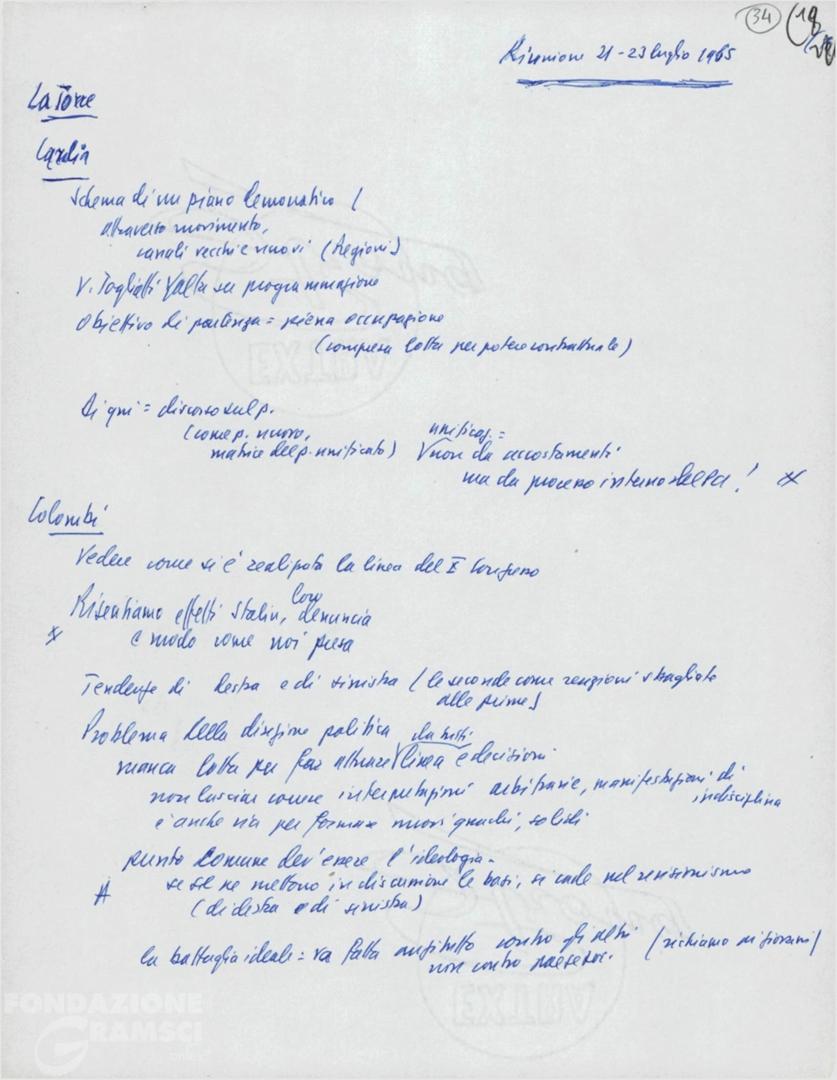 34
Riunione 21-23 luglio 1965
La Torre
Cardia
Schema di un piano democratico (
attraverso movimento,
canali vecchi e nuovi (Regioni)
V. Togliatti Yalta su programmazione
Obiettivo di partenza = piena occupazione
(compresa lotta per potere contrattuale)
Di qui = discorso sul p.
(come p. nuovo,
matrice del p. unificato)
unificaz. =
non da accostamenti
ma da processo interno del PCI! x
Colombi
Vedere come si è realizzata la linea del X Congresso
Risentiamo effetti Stalin, loro denuncia
x e modo come noi presa
Tendenze di destra e di sinistra (le seconde come reazioni sbagliate
alle prime)
Problema della direzione politica
manca lotta per far attuare da tutti linea e decisioni
non lasciar correre interpretazioni arbitrarie, manifestazioni di
indisciplina
è anche via per formare nuovi quadri, solidi
punto comune dev'essere l'ideologia -
se se ne mettono in discussione le basi, si cade nel revisionismo
(di destra e di sinistra)
la battaglia ideale = va fatta anzitutto contro gli altri (richiamo ai giovani)
non contro
FONDAZIONE
GRAMSCI
EXTRA